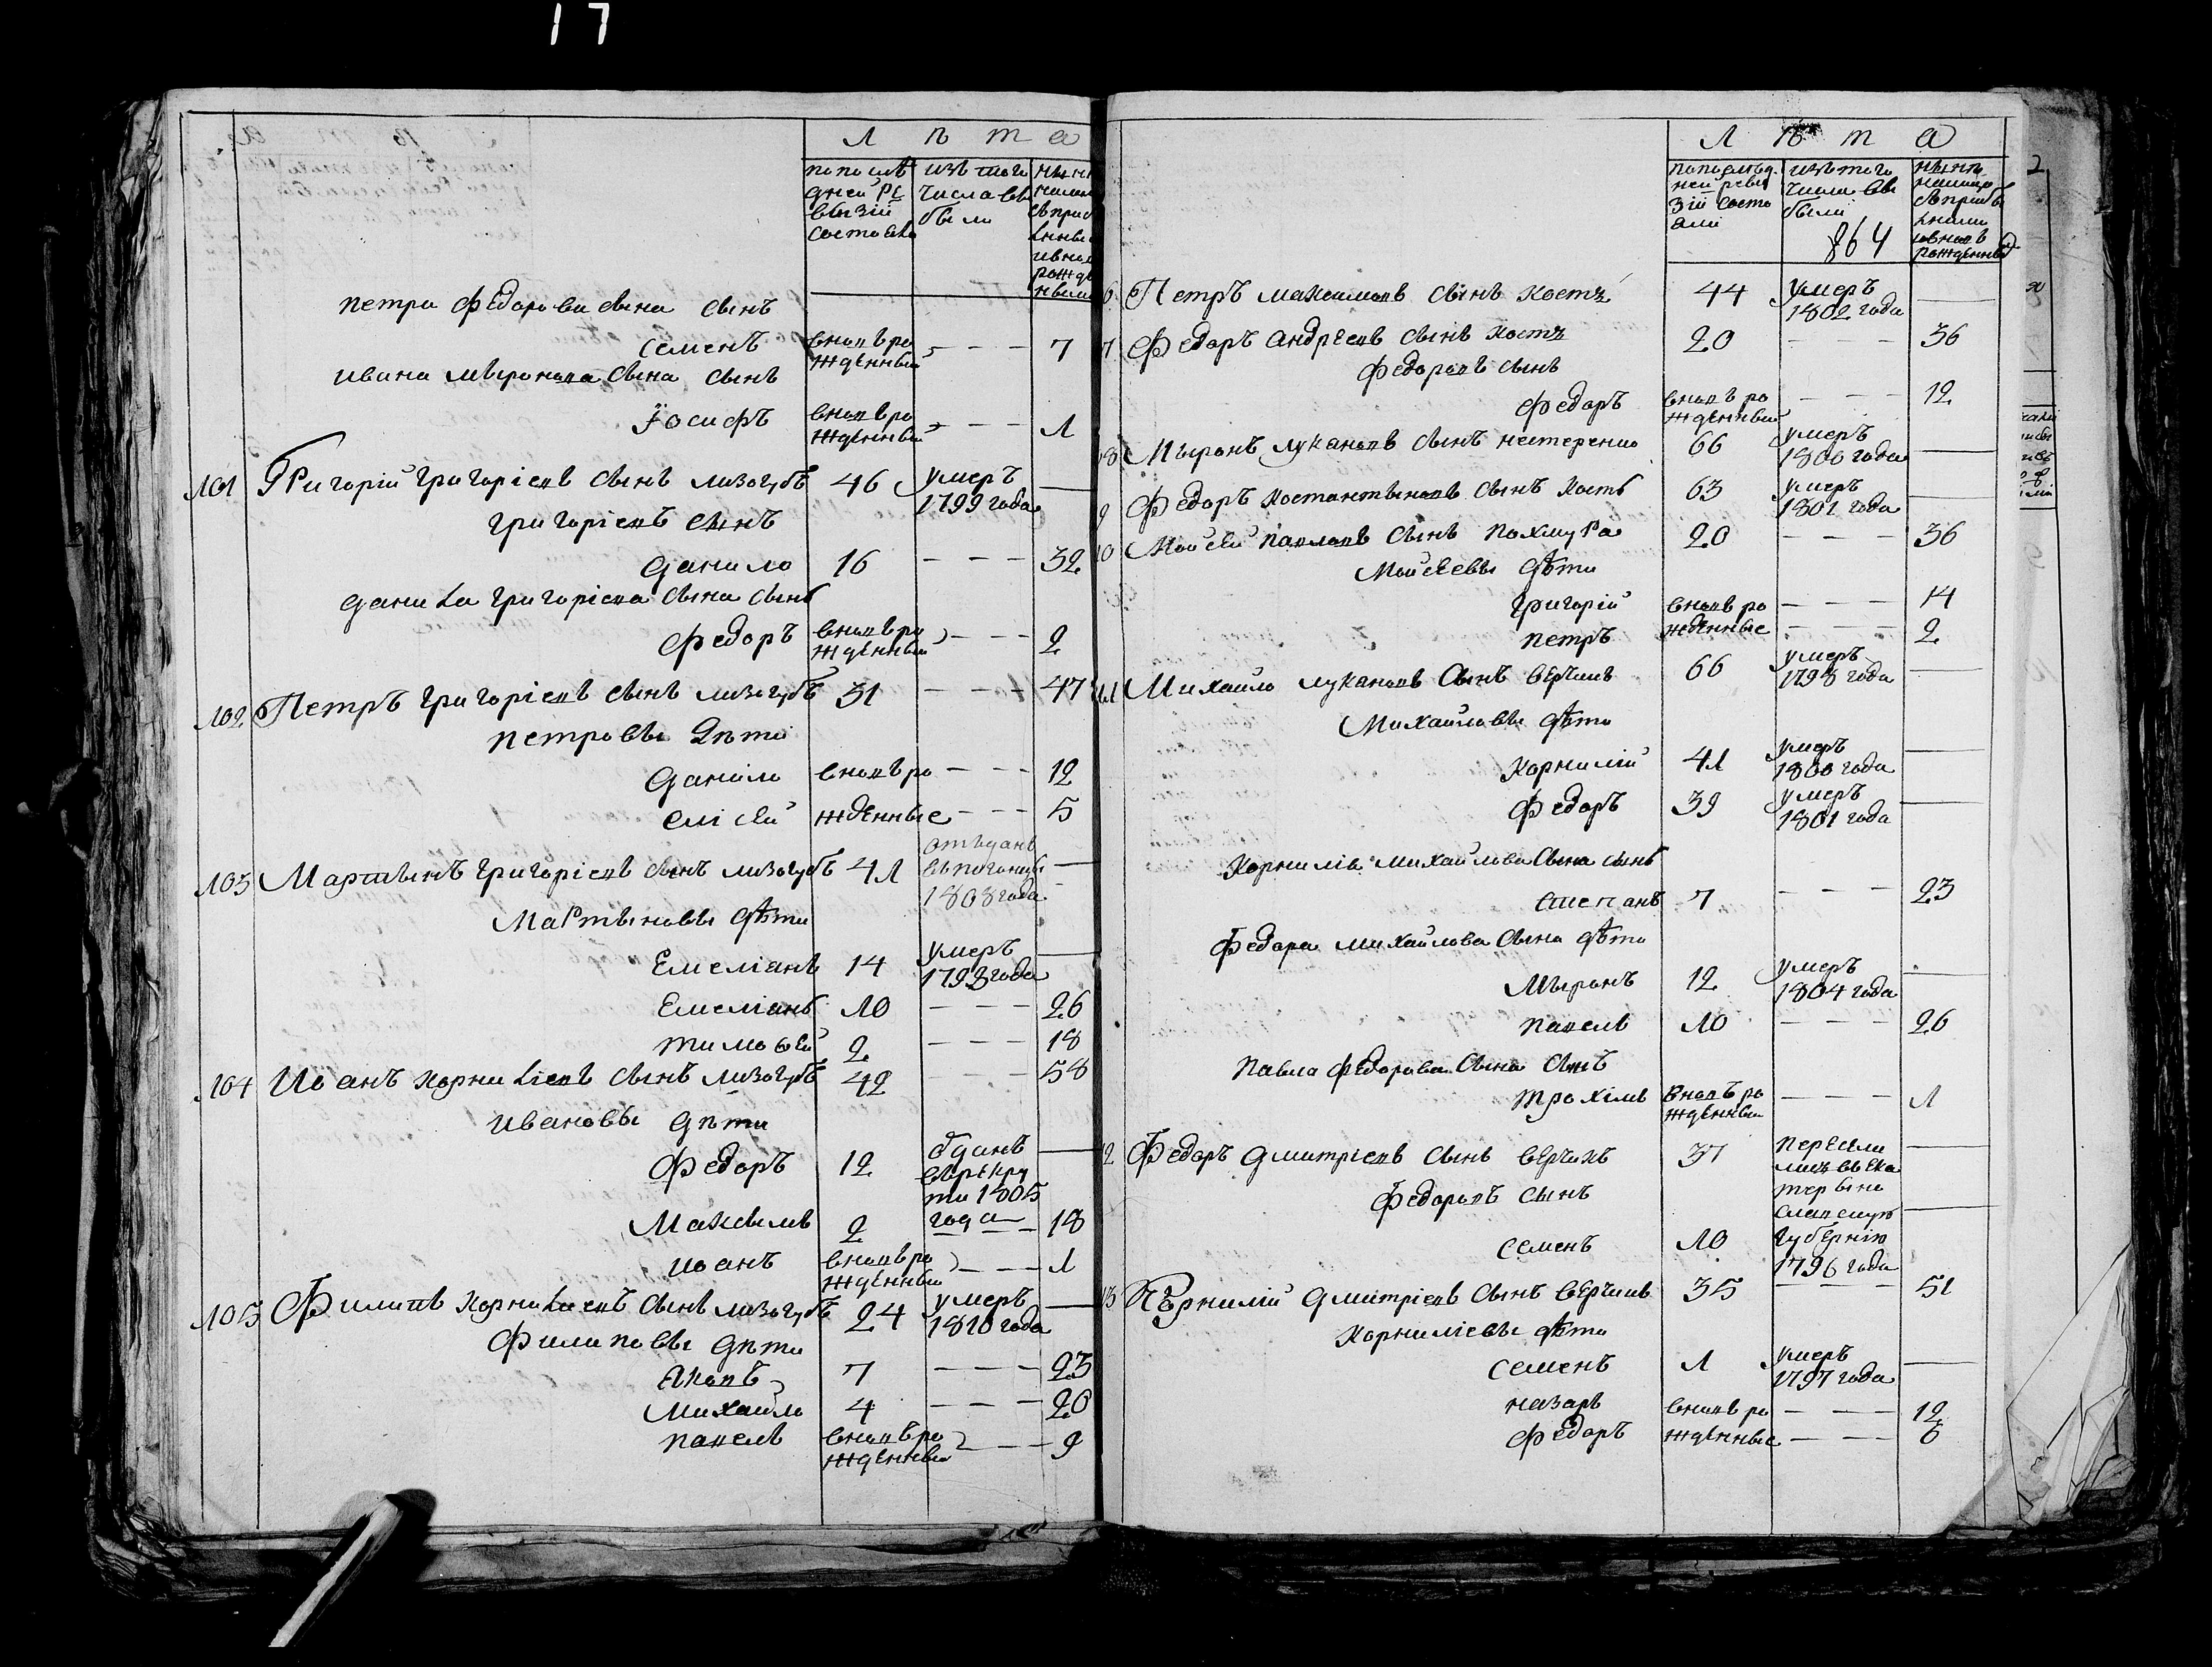 17
Л ѣ т а
попослѣ
дней ре
визіи
состояло
изъ того
числа вы
было
Петра Федорова сына сынъ
Семенъ вновь ро
жденный - - - 7
Ивана Мыронова сына сынъ
Іосифъ вновь ро
жденный - - - 1
101 Григорій Григоріевъ сынъ Лизогубъ 46 умеръ
1799 года —
Григоріевъ сынъ
Данило 16 - - - 32
Данила Григоріева сына сынъ
Федоръ вновь ро
жденный - - - 2
102 Петръ Григоріевъ сынъ Лизогубъ 31 - - - 47
Петровы дѣти
Данило вновь ро - - - 12
Елісей жденные - - - 5
103 Мартынъ Григоріевъ сынъ Лизогубъ 41 отъданъ
въ погонцы
1808 года —
Мартыновы дѣти
Емеліанъ 14 умеръ
1798 года —
Емеліанъ 10 - - - 26
Тимофей 2 - - - 18
104 Иванъ Корниліевъ сынъ Лизогубъ 42 - - - 58
Ивановы дѣти
Федоръ 12 отданъ
въ рекру
ти 1805
года —
Максымъ 2 - 18
Иванъ вновь ро
жденный - - - 1
105 Филипъ Корниліевъ сынъ Лизогубъ 24 умеръ
1810 года —
Филиповы дѣти
Яковъ 7 - - - 23
Михайло 4 - - - 20
Павелъ вновь ро
жденный - - - 9
Л ѣ т а
попослѣд
ней реви
зіи состо
яли
изъ того
числа вы
были
864
нынѣ
налицо
съ прибы
лыми
и вновь
рожденным
2
6 Петръ Максимовъ сынъ Костъ 44 умеръ
1802 года —
7 Федоръ Андреевъ сынъ Костъ 20 - - - 36
Федоровъ сынъ
Федоръ вновь ро
жденный - - - 12
8 Мыронъ Лукановъ сынъ Нестеренко 66 умеръ
1800 года —
9 Федоръ Костантыновъ сынъ Костъ 63 умеръ
1801 года —
10 Мойсей Павловъ сынъ Похмура 20 - - - 36
Мойсеевы дѣти
Григорій вновь ро - - - 14
Петръ жденные - - - 2
11 Михайло Лукановъ сынъ Верчикъ 66 умеръ
1798 года —
Михайловы дѣти
Корнилій 41 умеръ
1800 года —
Федоръ 39 умеръ
1801 года —
Корнилія Михайлова сына сынъ
Степанъ 7 - - - 23
Федора Михайлова сына дѣти
Мыронъ 12 умеръ
1804 года —
Павелъ 10 - - - 26
Павла Федорова сына сынъ
Трохімъ вновь ро
жденный - - - 1
12 Федоръ Дмитріевъ сынъ Верчикъ 37 пересели
лись въ Ека
терыно
славскую
губернію
1796 года —
Федоровъ сынъ
Семенъ 10 —
13 Корнилій Дмитріевъ сынъ Верчикъ 35 - - - 51
Корниліевы дѣти
Семенъ 1 умеръ
1797 года —
Назаръ вновь ро - - - 12
Федоръ жденные - - - 6